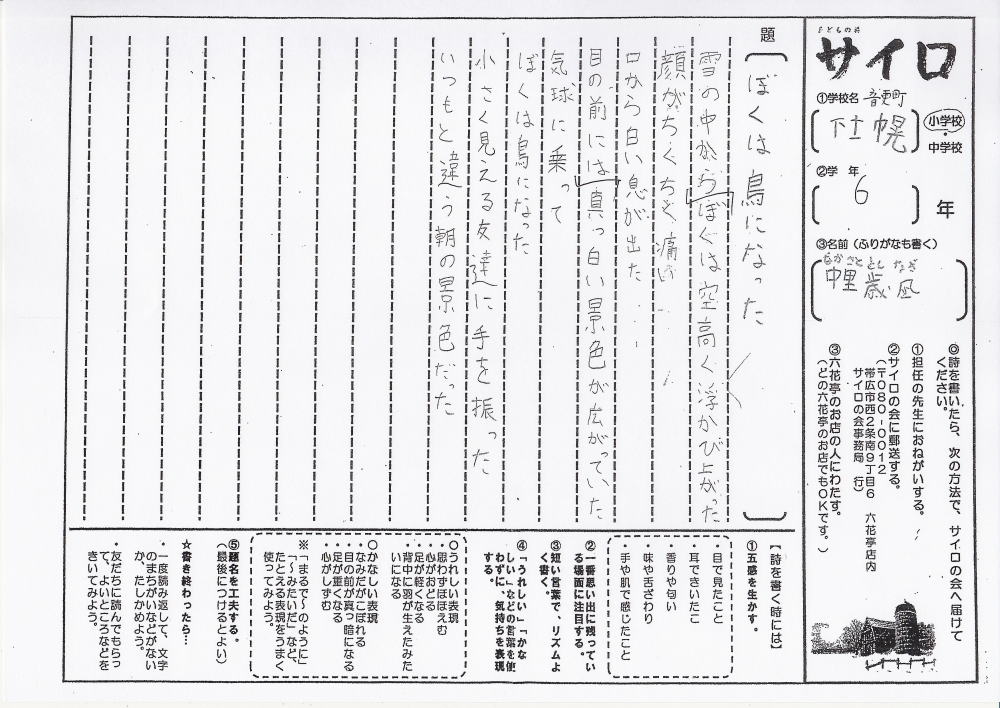 こどもの詩
サイロ
①学校名
音更町
下士幌
小学校
・
中学校
②学　年
6
年
③名前（ふりがなも書く）
なかさと とし なぎ
中里 歳凪
◎詩を書いたら、次の方法で、サイロの会へ届けて
ください。
①担任の先生におねがいする。
②サイロの会に郵送する。
（〒080-0012
帯広市西2条南9丁目6　六花亭店内
サイロの会事務局　行）
③六花亭のお店の人にわたす。
（どの六花亭のお店でもOKです。）
題
ぼくは鳥になった
雪の中からぼくは空高く浮かび上がった
顔がちくちく痛い
口から白い息が出た
目の前には真っ白い景色が広がっていた
気球に乗って
ぼくは鳥になった
小さく見える友達に手を振った
いつもと違う朝の景色だった
【詩を書く時には】
①五感を生かす。
・目で見たこと
・耳できいたこと
・香りや匂い
・味や舌ざわり
・手や肌で感じたこと
②一番思い出に残ってい
る場面に注目する。
③短い言葉で、リズムよ
く書く。
④「うれしい」「かな
しい」などの言葉を使
わずに、気持ちを表現
する。
○うれしい表現
・思わずほほえむ
・心がおどる
・足が軽くなる
・背中に羽が生えたみた
いになる
○かなしい表現
・なみだがこぼれる
・目の前が真っ暗になる
・足が重くなる
・心がしずむ
※「まるで～のように」
「～みたいだ」など、
たとえる表現をうまく
使ってみよう。
⑤題名を工夫する。
（最後につけるとよい）
★書き終わったら…
・一度読み返して、文字
のまちがいなどがない
か、たしかめよう。
・友だちに読んでもらっ
て、よいところなどを
きいてみよう。